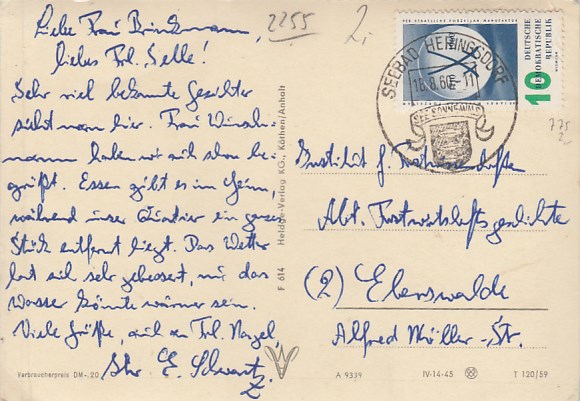 Liebe Frau Brinkmann,
liebes Frl. Selle!
Sehr viel bekannte Gesichter
sieht man hier. Frau
mann haben wir auch schon be-
grüßt. Essen gibt es im Heim,
während unser Quartier ein ganzes
Stück entfernt liegt. Das Wetter
hat sich sehr gebessert, nur das
Wasser könnte wärmer sein.
Viele Grüße, auch an Frl. Nagel,
Ihr E. Schwartz
Verbraucherpreis DM -.20
2255
2,-
F 614 Heldge-Verlag KG., Köthen/Anhalt
DEUTSCHE
DEMOKRATISCHE
REPUBLIK
10
SEEBAD HERINGSDORF
18.8.60.-11
SEE SONNE WALD
725
2,-
Institut f. Forstwissenschaften
Abt. Forstwirtschaftsgeschichte
(2) Eberswalde
Alfred Möller-Str.
A 9339
IV-14-45
T 120/59